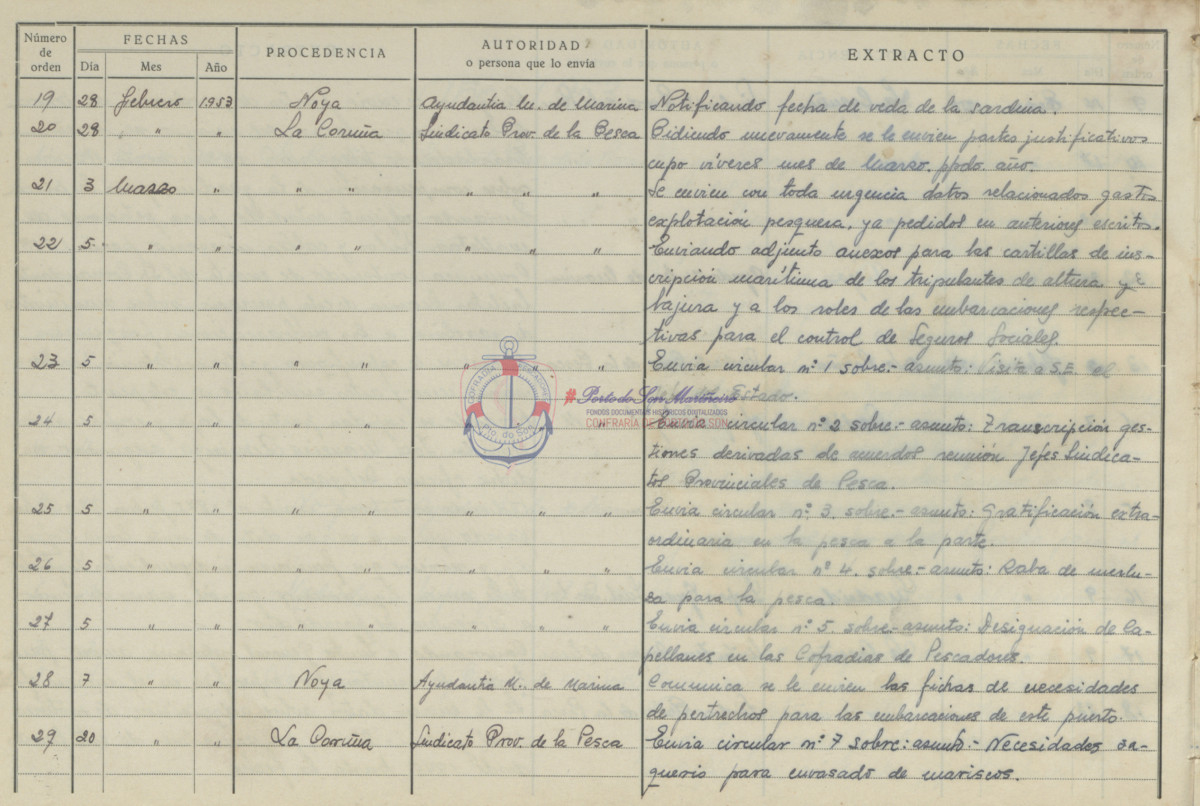 Número de orden FECHAS PROCEDENCIA AUTORIDAD o persona que lo envía EXTRACTO
Día Mes Año
19 28 Febrero 1953 Noya Ayudantía M. de Marina Notificando fecha de veda de la sardina.
20 28 " " La Coruña Sindicato Prov. de la Pesca Pidiendo nuevamente se le envien partes justificativos
cupo víveres mes de Marzo, ppdo. año.
21 3 Marzo " " " " " " Se envien con toda urgencia datos relacionados gastos
explotación pesquera, ya pedidos en anteriores escritos.
22 5 " " " " " " " Enviando adjunto anexos para las cartillas de ins-
cripción marítima de los tripulantes de altura y
bajura y a los roles de las embarcaciones respec-
tivas para el control de Seguros Sociales.
23 5 " " " " " " " Envia circular nº 1 sobre.- asunto: Visita a S.E. el
Estado.
24 5 " " " " " Envia circular nº 2 sobre.- asunto: Transcripción ges-
tiones derivadas de acuerdos reunión Jefes Sindica-
tos Provinciales de Pesca.
25 5 " " " " " " " Envia circular nº 3. sobre.- asunto: Gratificación extra-
ordinaria en la pesca a la parte.
26 5 " " " " " " " Envia circular nº 4. sobre.- asunto: Raba de merlu-
sa para la pesca.
27 5 " " " " " " " Envia circular nº 5. sobre.- asunto: Designación de Ca-
pellanes en las Cofradias de Pescadores.
28 7 " " Noya Ayudantía M. de Marina Comunica se le envien las fichas de necesidades
de pertrechos para las embarcaciones de este puerto.
29 20 " " La Coruña Sindicato Prov. de la Pesca Envia circular nº 7 sobre: asunto.- Necesidades sa-
querio para envasado de mariscos.
COFRADIA PESCADORES
Pto. do Son
# Porto do Son Mariñeiro
FONDOS DOCUMENTAIS HISTÓRICOS DIXITALIZADOS
CONFRARIA DE PORTO DO SON